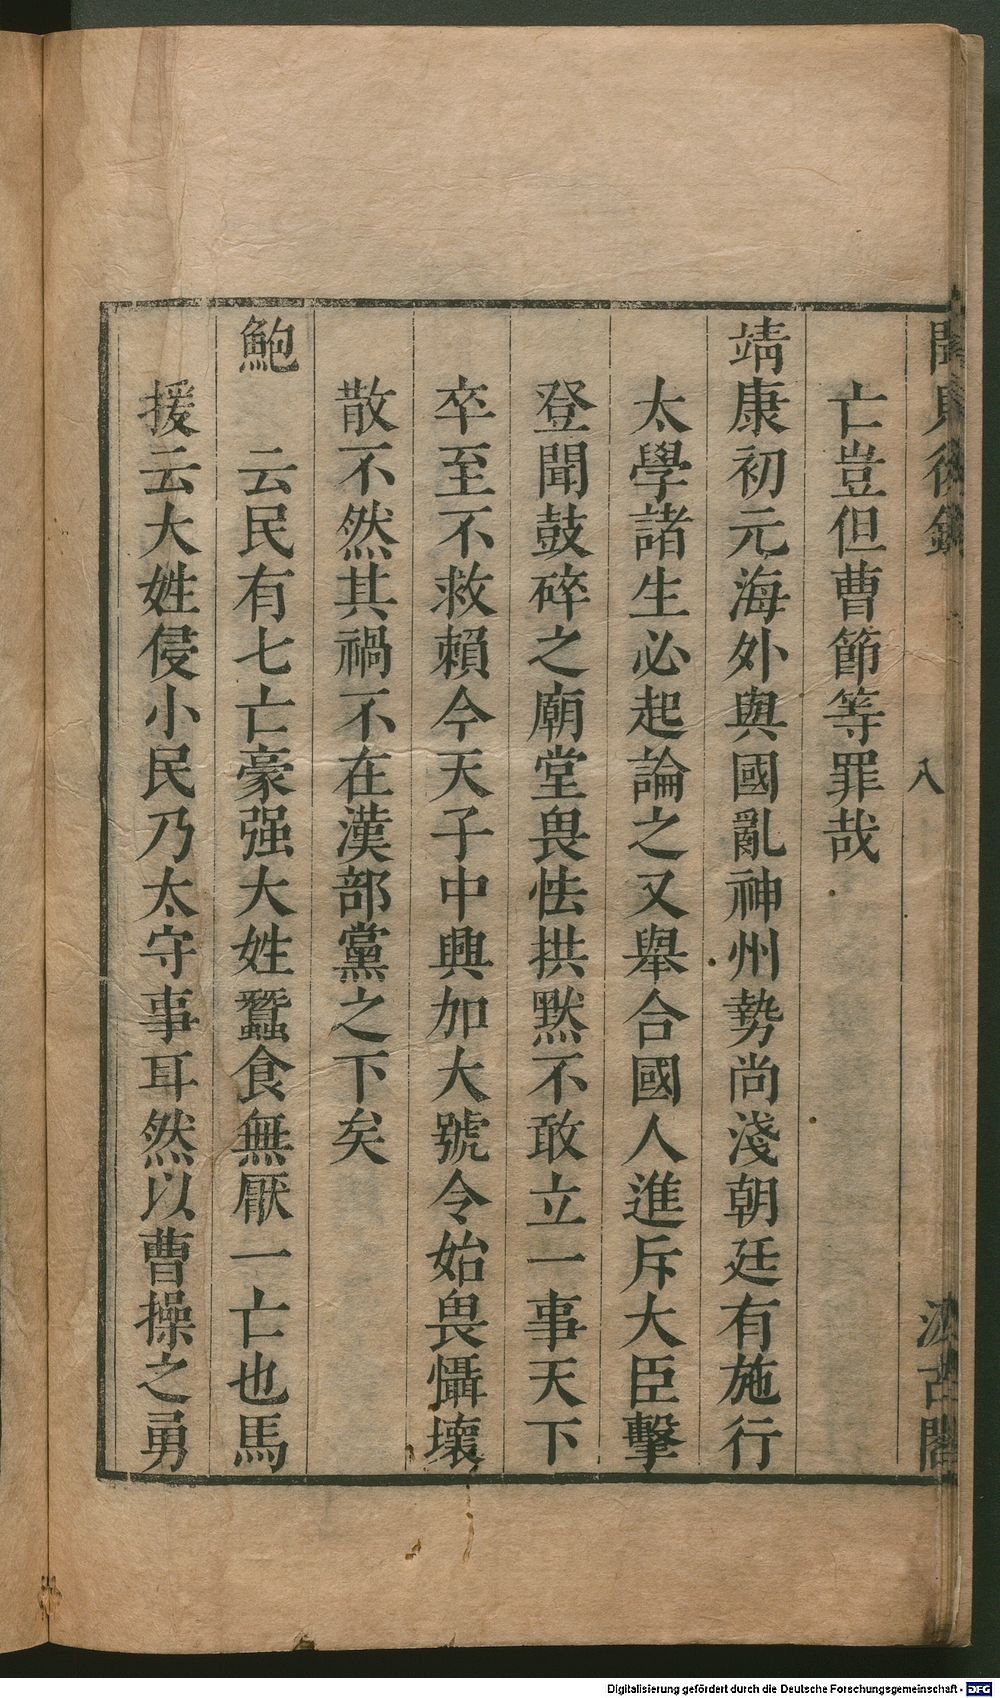 聞見後錄 八 汲古閣
亡豈但曹節等罪哉
靖康初元海外與國亂神州勢尚淺朝廷有施行
太學諸生必起論之又舉合國人進斥大臣擊
登聞鼓碎之廟堂畏怯拱默不敢立一事天下
卒至不救賴今天子中興加大號令始畏懾壞
散不然其禍不在漢部黨之下矣
鮑 云民有七亡豪强大姓蠶食無厭一亡也馬
援云大姓侵小民乃太守事耳然以曹操之勇
Digitalisierung gefördert durch die Deutsche Forschungsgemeinschaft - DFG